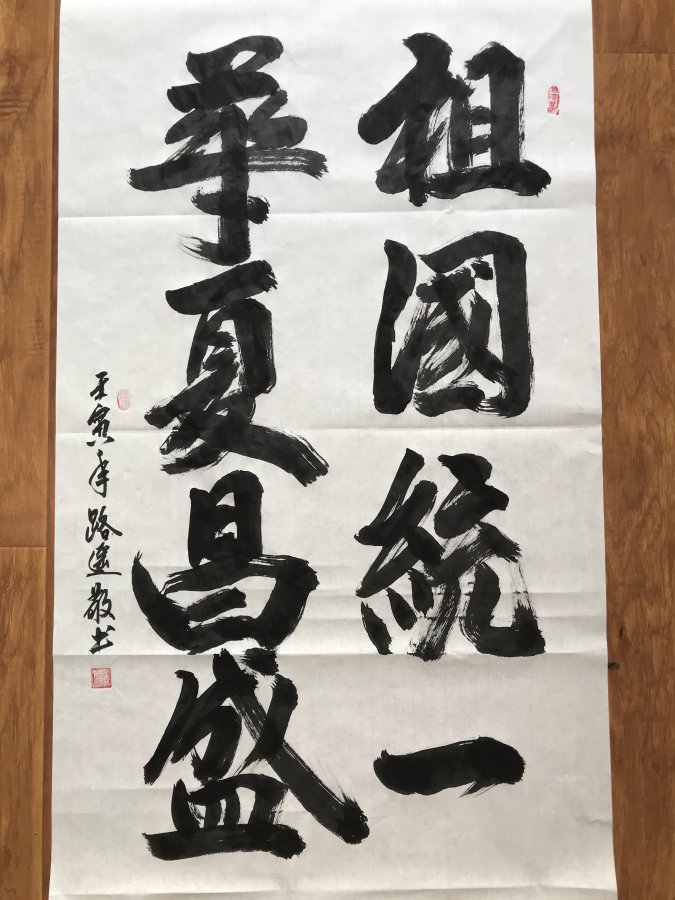 祖國統一
華夏昌盛
壬寅年路遥敬书